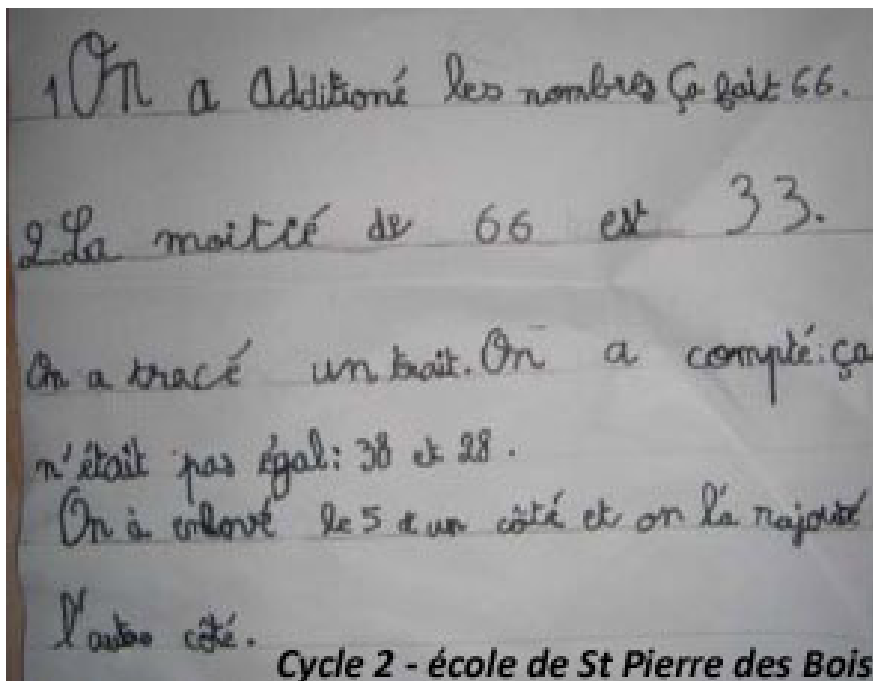 1 On a additioné les nombres Ça fait 66.
2 La moitié de 66 est 33.
On a tracé un trait. On a compté: ça
n'était pas égal: 38 et 28.
On à enlové le 5 d'un côté et on l'a rajouté
l'autre côté.
Cycle 2 - école de St Pierre des Bois